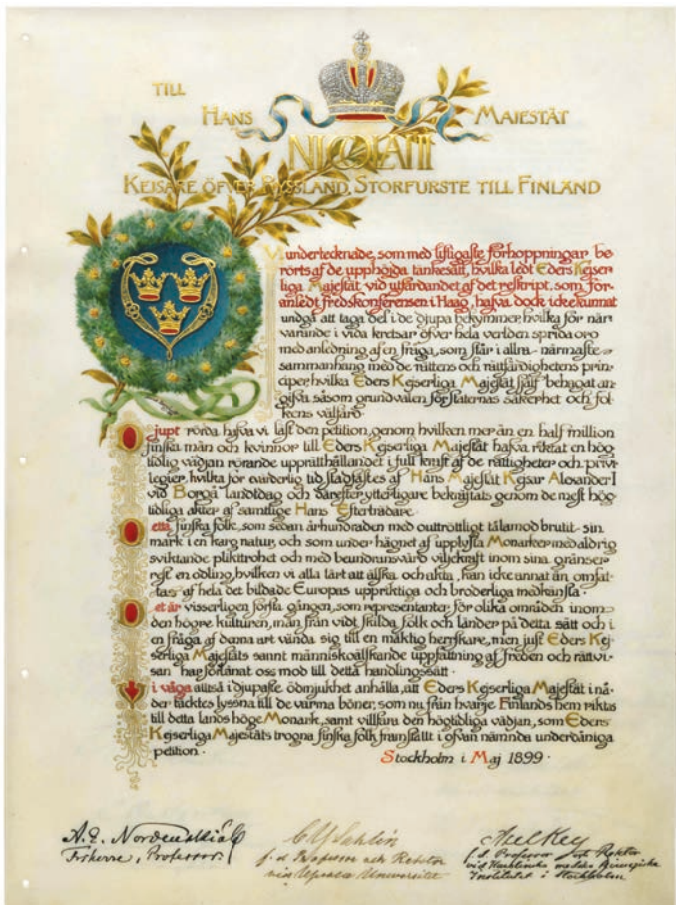 TILL
HANS MAJESTÄT
NICOLAI II
KEJSARE ÖFVER RYSSLAND, STORFURSTE TILL FINLAND
undertecknade, som med lifligaste förhoppningar be-
rörts af de upphöjda tankesätt, hvilka ledt Eders Kejser-
liga Majestät vid utfärdandet af det reskript, som för-
anledt fredskonferensen i Haag, hafva dock icke kunnat
undgå att taga del i de djupa bekymmer, hvilka för när-
varande i vida kretsar öfver hela verlden sprida oro
med anledning af en fråga, som står i allra-närmaste
sammanhang med de rättens och rättfärdighetens prin-
ciper, hvilka Eders Kejserliga Majestät sjelf behagat an-
gifva såsom grundvalen för staternas säkerhet och fol-
kens välfärd.
Djupt rörda hafva vi läst den petition, genom hvilken mer än en half million
finska män och kvinnor till Eders Kejserliga Majestät hafva riktat en hög-
tidlig vädjan rörande upprätthållandet i full kraft af de rättigheter och privi-
legier, hvilka för evärderlig tid stadfästes af Hans Majestät Kejsar Alexander I
vid Borgå landtdag och därefter ytterligare bekräftats genom de mest hög-
tidliga akter af samtlige Hans Efterträdare.
Detta finska folk, som sedan århundraden med outtröttligt tålamod brutit sin
mark i en karg natur, och som under hägnet af upplysta Monarker med aldrig
sviktande plikttrohet och med beundransvärd viljekraft inom sina gränser
rest en odling, hvilken vi alla lärt att älska och akta, kan icke annat än omfat-
tas af hela det bildade Europas uppriktiga och broderliga medkänsla.
Det är visserligen första gången, som representanter för olika områden inom
den högre kulturen, män från vidt skilda folk och länder på detta sätt och i
en fråga af denna art vända sig till en mäktig herrskare, men just Eders Kej-
serliga Majestäts sannt människoälskande uppfattning af freden och rättvi-
san har förlänat oss mod till detta handlingssätt.
Vi våga alltså i djupaste ödmjukhet anhålla, att Eders Kejserliga Majestät i nå-
der täcktes lyssna till de varma böner, som nu från hvarje Finlands hem riktas
till detta lands höge Monark, samt villfara den högtidliga vädjan, som Eders
Kejserliga Majestäts trogna finska folk framställt i ofvan nämnda underdåniga
petition.
Stockholm i Maj 1899.
A. E. Nordenskiöld
Friherre, Professor.
C Y Sahlin
f. d. Professor och Rektor
vid Upsala Universitet
Axel Key
f. d. Professor och Rektor
vid Karolinska mediko kirurgiska
Institutet i Stockholm